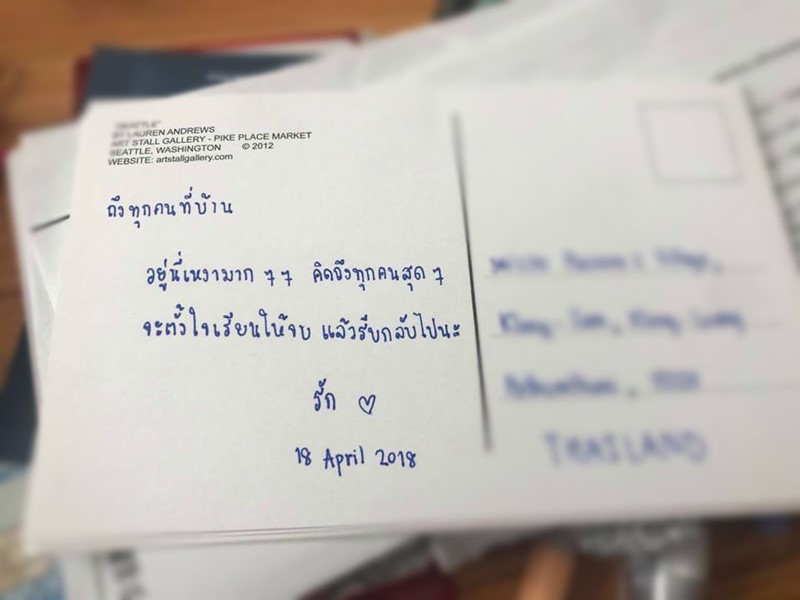 "SEATTLE"
BY LAUREN ANDREWS
ART STALL GALLERY - PIKE PLACE MARKET
SEATTLE, WASHINGTON © 2012
WEBSITE: artstallgallery.com
ถึงทุกคนที่บ้าน
อยู่นี่เหงามาก ๆ ๆ คิดถึงทุกคนสุด ๆ
จะตั้งใจเรียนให้จบ แล้วรีบกลับไปนะ
รัก ♡
18 April 2018
THAILAND